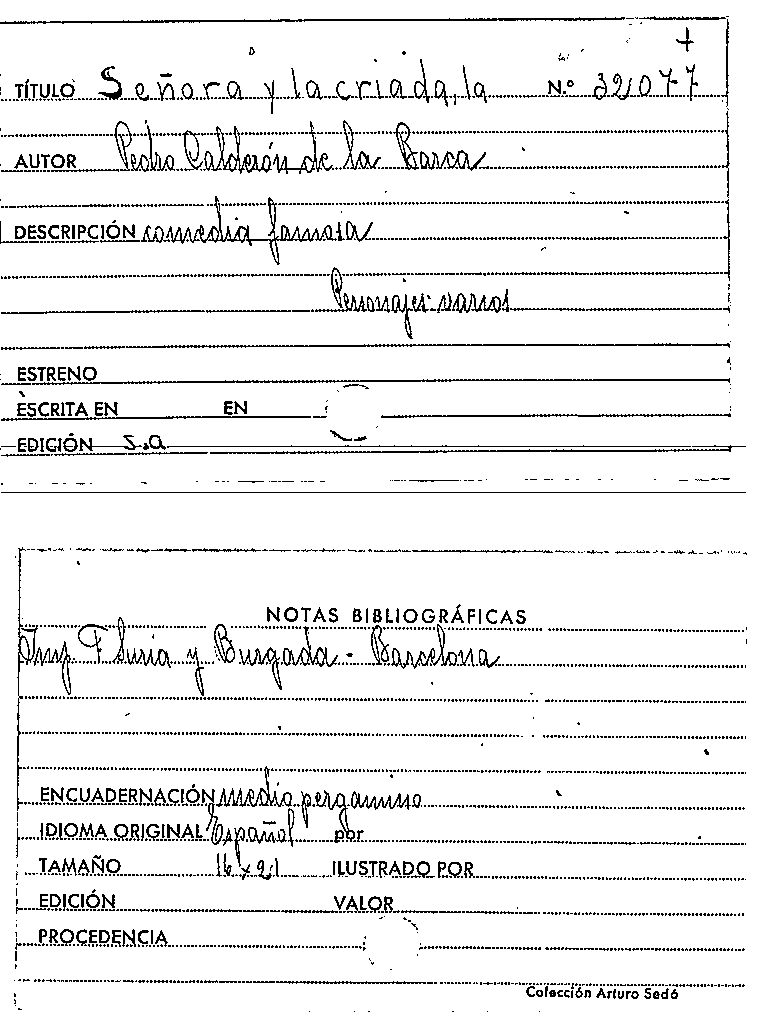 +
TÍTULO Señora y la criada, la N.º 32077
AUTOR Pedro Calderón de la Barca
DESCRIPCIÓN comedia famosa
Personajes: varios
ESTRENO
ESCRITA EN EN
EDICIÓN s.a
NOTAS BIBLIOGRÁFICAS
Imp F Suria y Burgada - Barcelona
ENCUADERNACIÓN medio pergamino
IDIOMA ORIGINAL Español por
TAMAÑO 16 x 21 ILUSTRADO POR
EDICIÓN VALOR
PROCEDENCIA
Colección Arturo Sedó